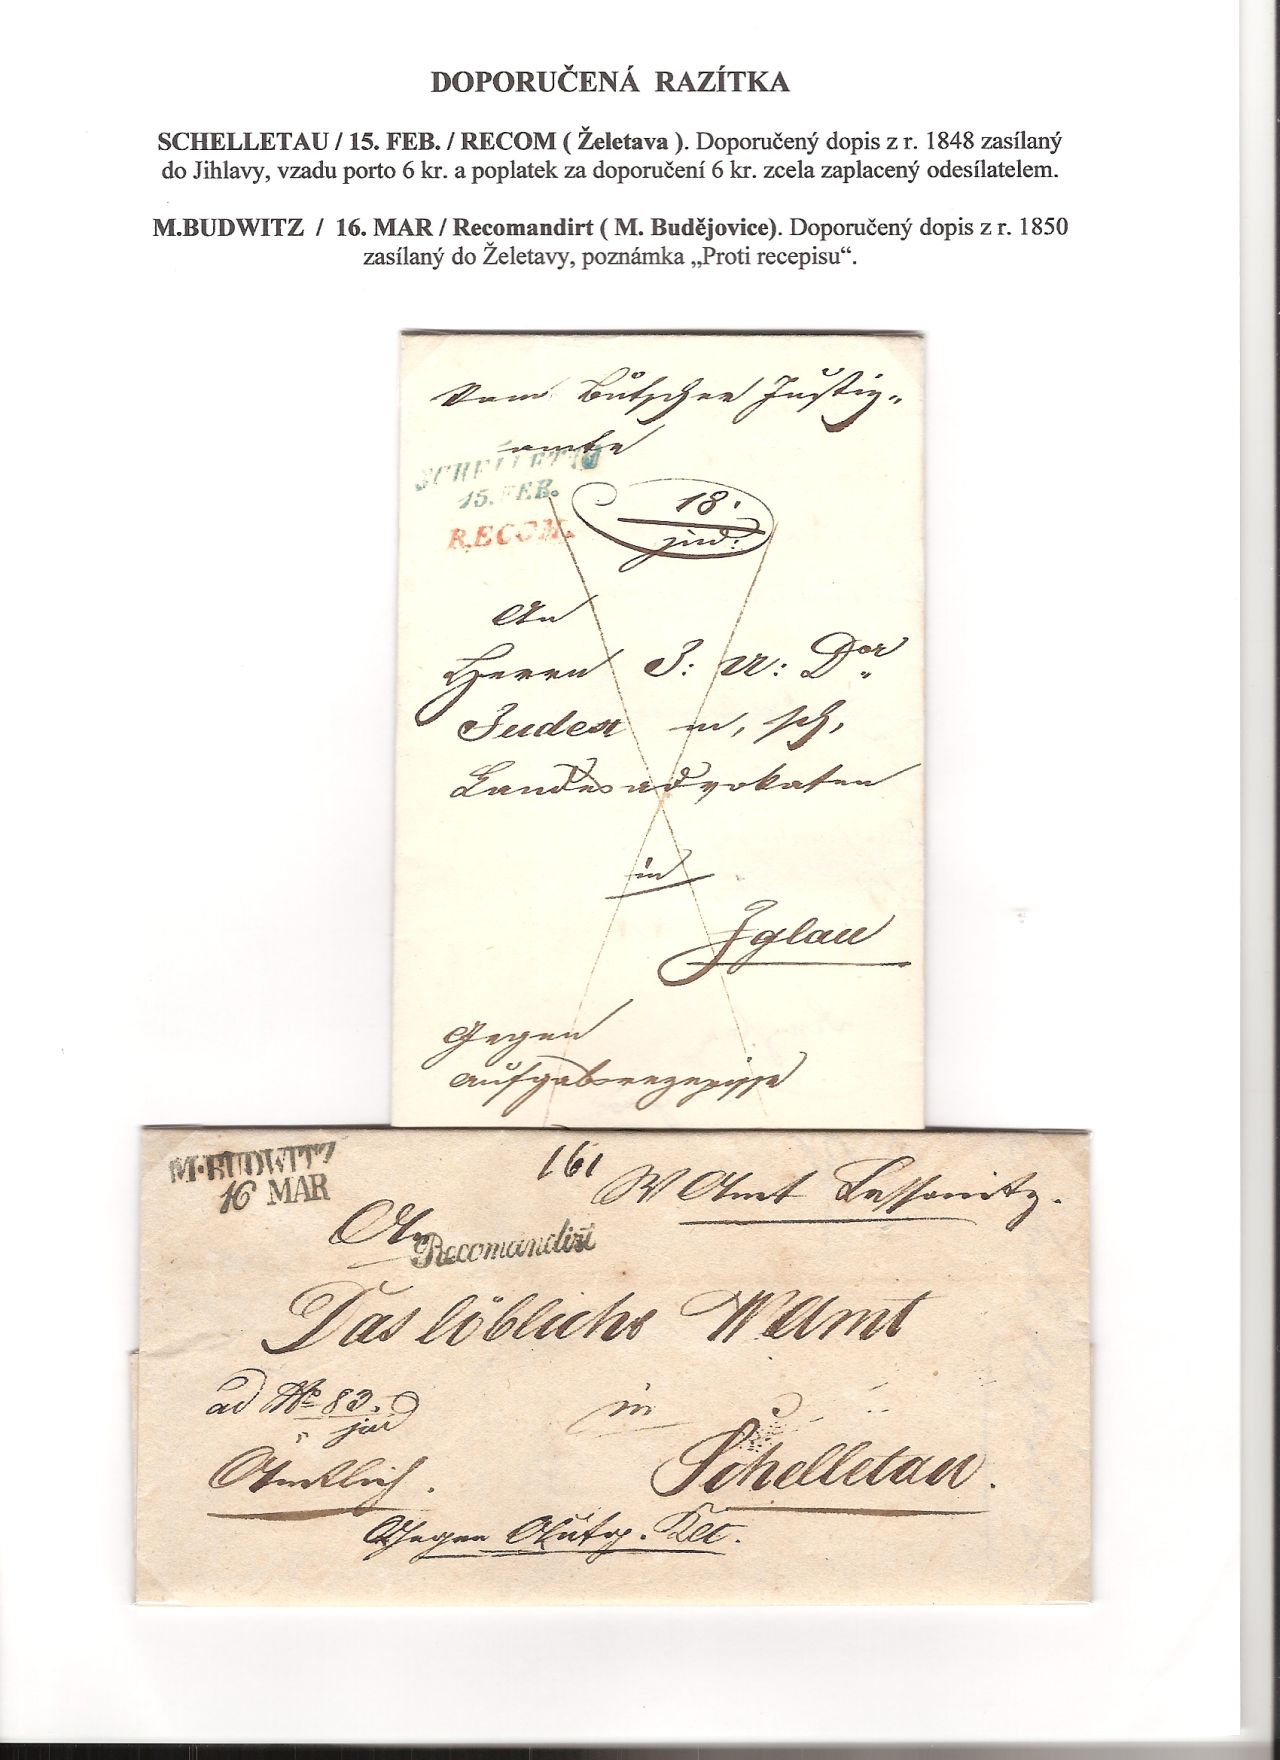 DOPORUČENÁ RAZÍTKA
SCHELLETAU / 15. FEB. / RECOM ( Želetava ). Doporučený dopis z r. 1848 zasílaný
do Jihlavy, vzadu porto 6 kr. a poplatek za doporučení 6 kr. zcela zaplacený odesílatelem.
M.BUDWITZ / 16. MAR / Recomandirt ( M. Budějovice). Doporučený dopis z r. 1850
zasílaný do Želetavy, poznámka „Proti recepisu“.
Vom Butscher Justiz„
amte
SCHELLETAU
15. FEB.
RECOM.
18.
jud:
An
Herrn J: U: Dor
Judex m, sch,
Landesadvokaten
in
Iglau
Gegen
Aufgabsrezepisse
M.BUDWITZ
16 MAR
161
W Amt Lessonitz.
An
Recomandirt
Das löbliche WAmt
ad No 83.
jud
in
Schelletau.
Amtlich.
Gegen Aufg. Rct.